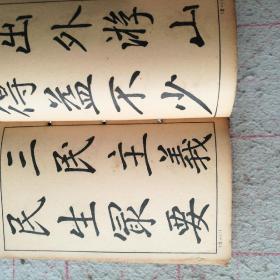 出外游山
得益不少
三民主義
民生冣要